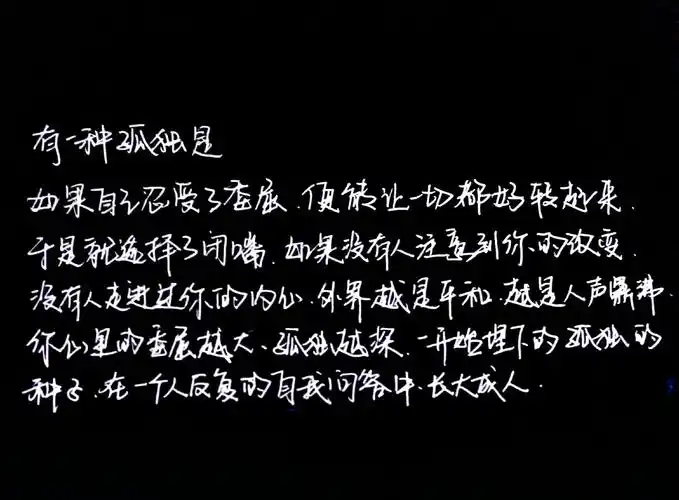 有一种孤独是
如果自己忍受了委屈.便能让一切都好转起来.
于是就选择了闭嘴.如果没有人注意到你的改变.
没有人走进过你的内心.外界越是平和.越是人声鼎沸.
你心里的委屈越大、孤独越深.一开始埋下的孤独的
种子.在一个人反复的自我问答中.长大成人.